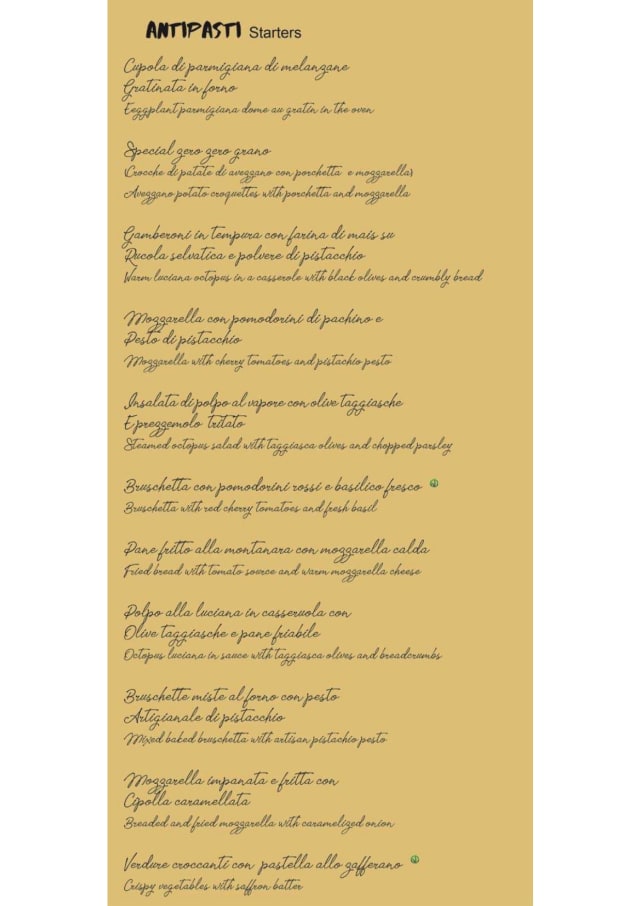 ANTIPASTI Starters
Cupola di parmigiana di melanzane
Gratinata in forno
Eeggplant parmigiana dome au gratin in the oven
Special zero zero grano
(Crocche di patate di avezzano con porchetta e mozzarella)
Avezzano potato croquettes with porchetta and mozzarella
Gamberoni in tempura con farina di mais su
Rucola selvatica e polvere di pistacchio
Warm luciana octopus in a casserole with black olives and crumbly bread
Mozzarella con pomodorini di pachino e
Pesto di pistacchio
Mozzarella with cherry tomatoes and pistachio pesto
Insalata di polpo al vapore con olive taggiasche
E prezzemolo tritato
Steamed octopus salad with taggiasca olives and chopped parsley
Bruschetta con pomodorini rossi e basilico fresco
Bruschetta with red cherry tomatoes and fresh basil
Pane fritto alla montanara con mozzarella calda
Fried bread with tomato source and warm mozzarella cheese
Polpo alla luciana in casseruola con
Olive taggiasche e pane friabile
Octopus luciana in sauce with taggiasca olives and breadcrumbs
Bruschette miste al forno con pesto
Artigianale di pistacchio
Mixed baked bruschetta with artisan pistachio pesto
Mozzarella impanata e fritta con
Cipolla caramellata
Breaded and fried mozzarella with caramelized onion
Verdure croccanti con pastella allo zafferano
Crispy vegetables with saffron batter